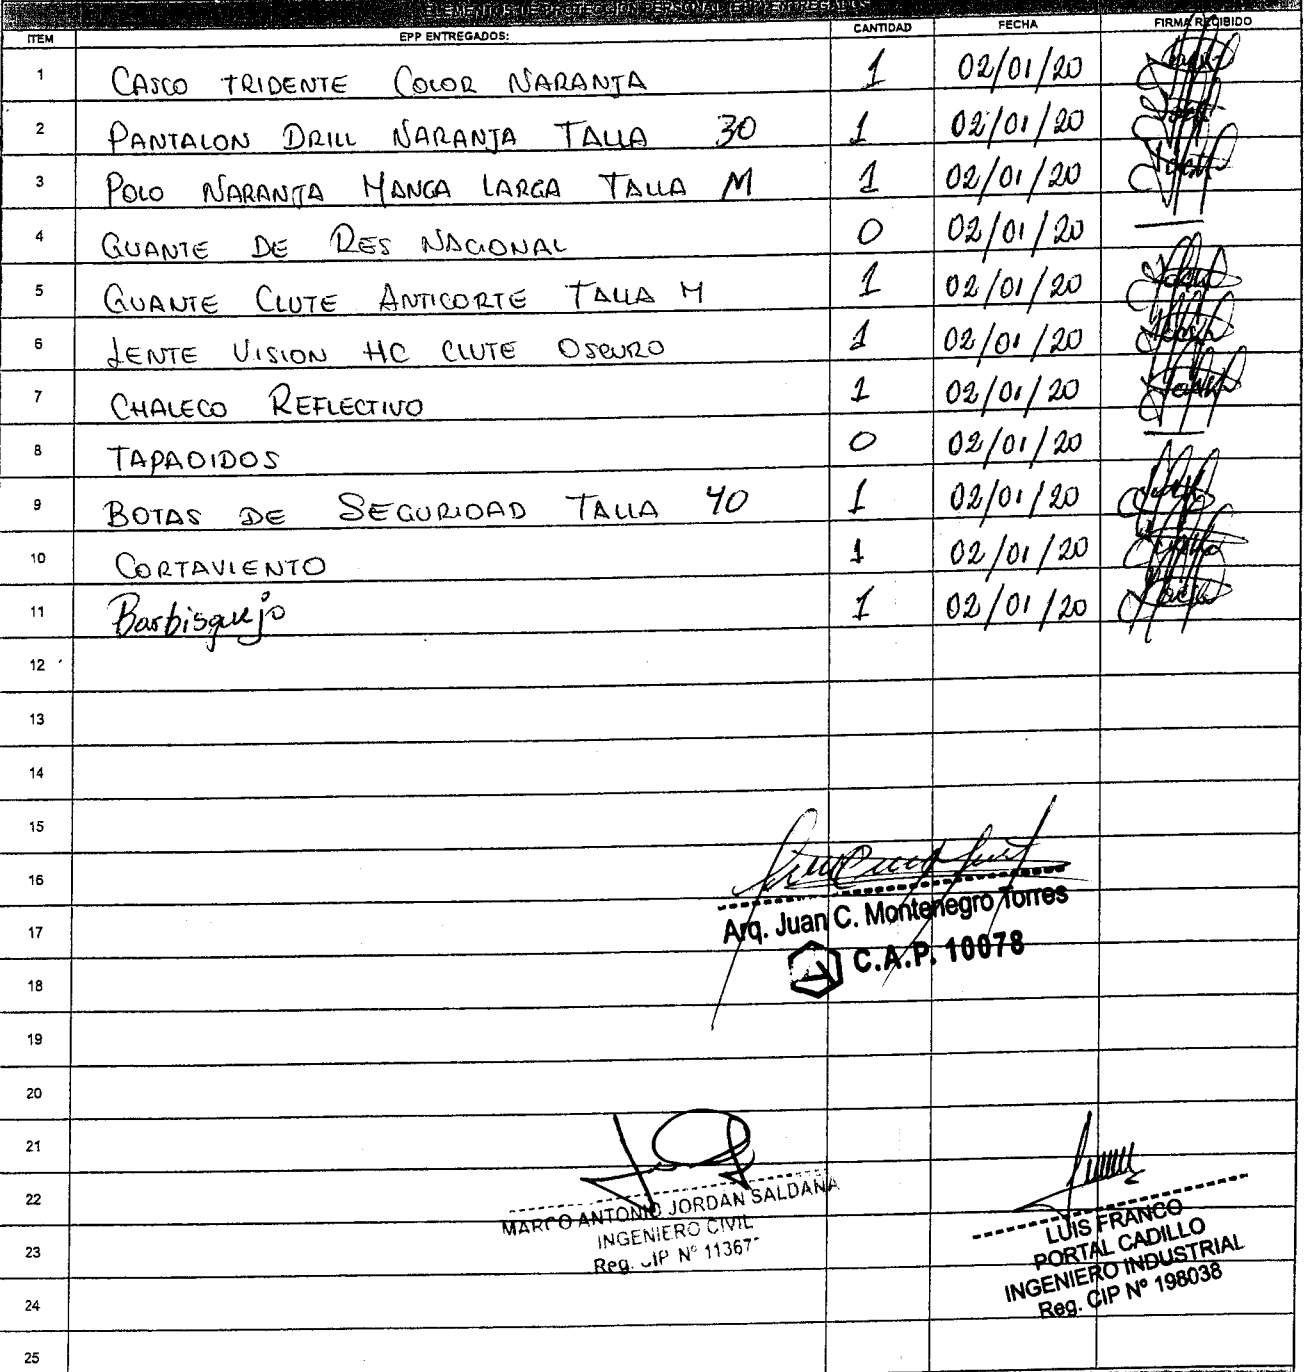 ELEMENTOS DE PROTECCION PERSONAL (EPP) ENTREGADOS
ITEM EPP ENTREGADOS: CANTIDAD FECHA FIRMA RECIBIDO
1 CASCO TRIDENTE COLOR NARANJA 1 02/01/20
2 PANTALON DRILL NARANJA TALLA 30 1 02/01/20
3 POLO NARANJA MANGA LARGA TALLA M 1 02/01/20
4 GUANTE DE RES NACIONAL 0 02/01/20
5 GUANTE CLUTE ANTICORTE TALLA M 1 02/01/20
6 LENTE VISION HC CLUTE OSCURO 1 02/01/20
7 CHALECO REFLECTIVO 1 02/01/20
8 TAPAOIDOS 0 02/01/20
9 BOTAS DE SEGURIDAD TALLA 40 1 02/01/20
10 CORTAVIENTO 1 02/01/20
11 Barbisquejo 1 02/01/20
12
13
14
15
16
Arq. Juan C. Montenegro Torres
17
C.A.P. 10078
18
19
20
21
22
MARCO ANTONIO JORDAN SALDAÑA
INGENIERO CIVIL
23
Reg. CIP Nº 11367
LUIS FRANCO
PORTAL CADILLO
INGENIERO INDUSTRIAL
24
Reg. CIP Nº 198038
25